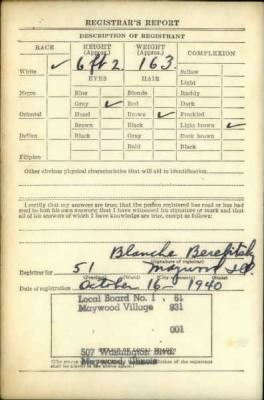 REGISTRAR'S REPORT
DESCRIPTION OF REGISTRANT
RACE HEIGHT (Approx.) WEIGHT (Approx.) COMPLEXION
White ✓ 6 ft 2 163 Sallow
EYES HAIR Light
Negro Blue Blonde Ruddy
Gray ✓ Red Dark
Oriental Hazel Brown ✓ Freckled
Brown Black Light brown ✓
Indian Black Gray Dark brown
Bald Black
Filipino
Other obvious physical characteristics that will aid in identification
I certify that my answers are true; that the person registered has read or has had
read to him his own answers; that I have witnessed his signature or mark and that
all of his answers of which I have knowledge are true, except as follows:
Blanche
(Signature of registrar)
Registrar for 51 Maywood Ill.
(Precinct) (Ward) (City or county) (State)
Date of registration October 16 - 1940
Local Board No. 1 81
Maywood Village 831
001
507 Washington Blvd.
Maywood, Illinois